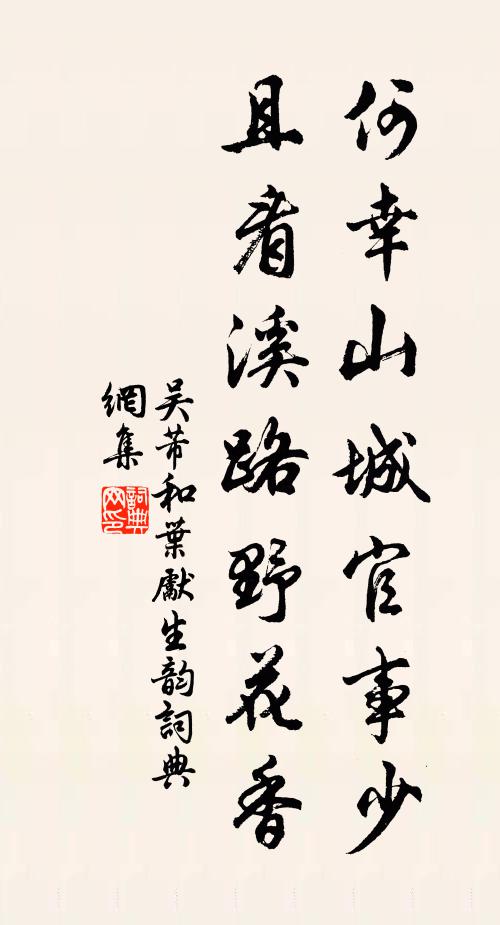 何幸山城官事少
且看溪路野花香
吴芾和葉獻生韵詞典
網集
詞典
网印